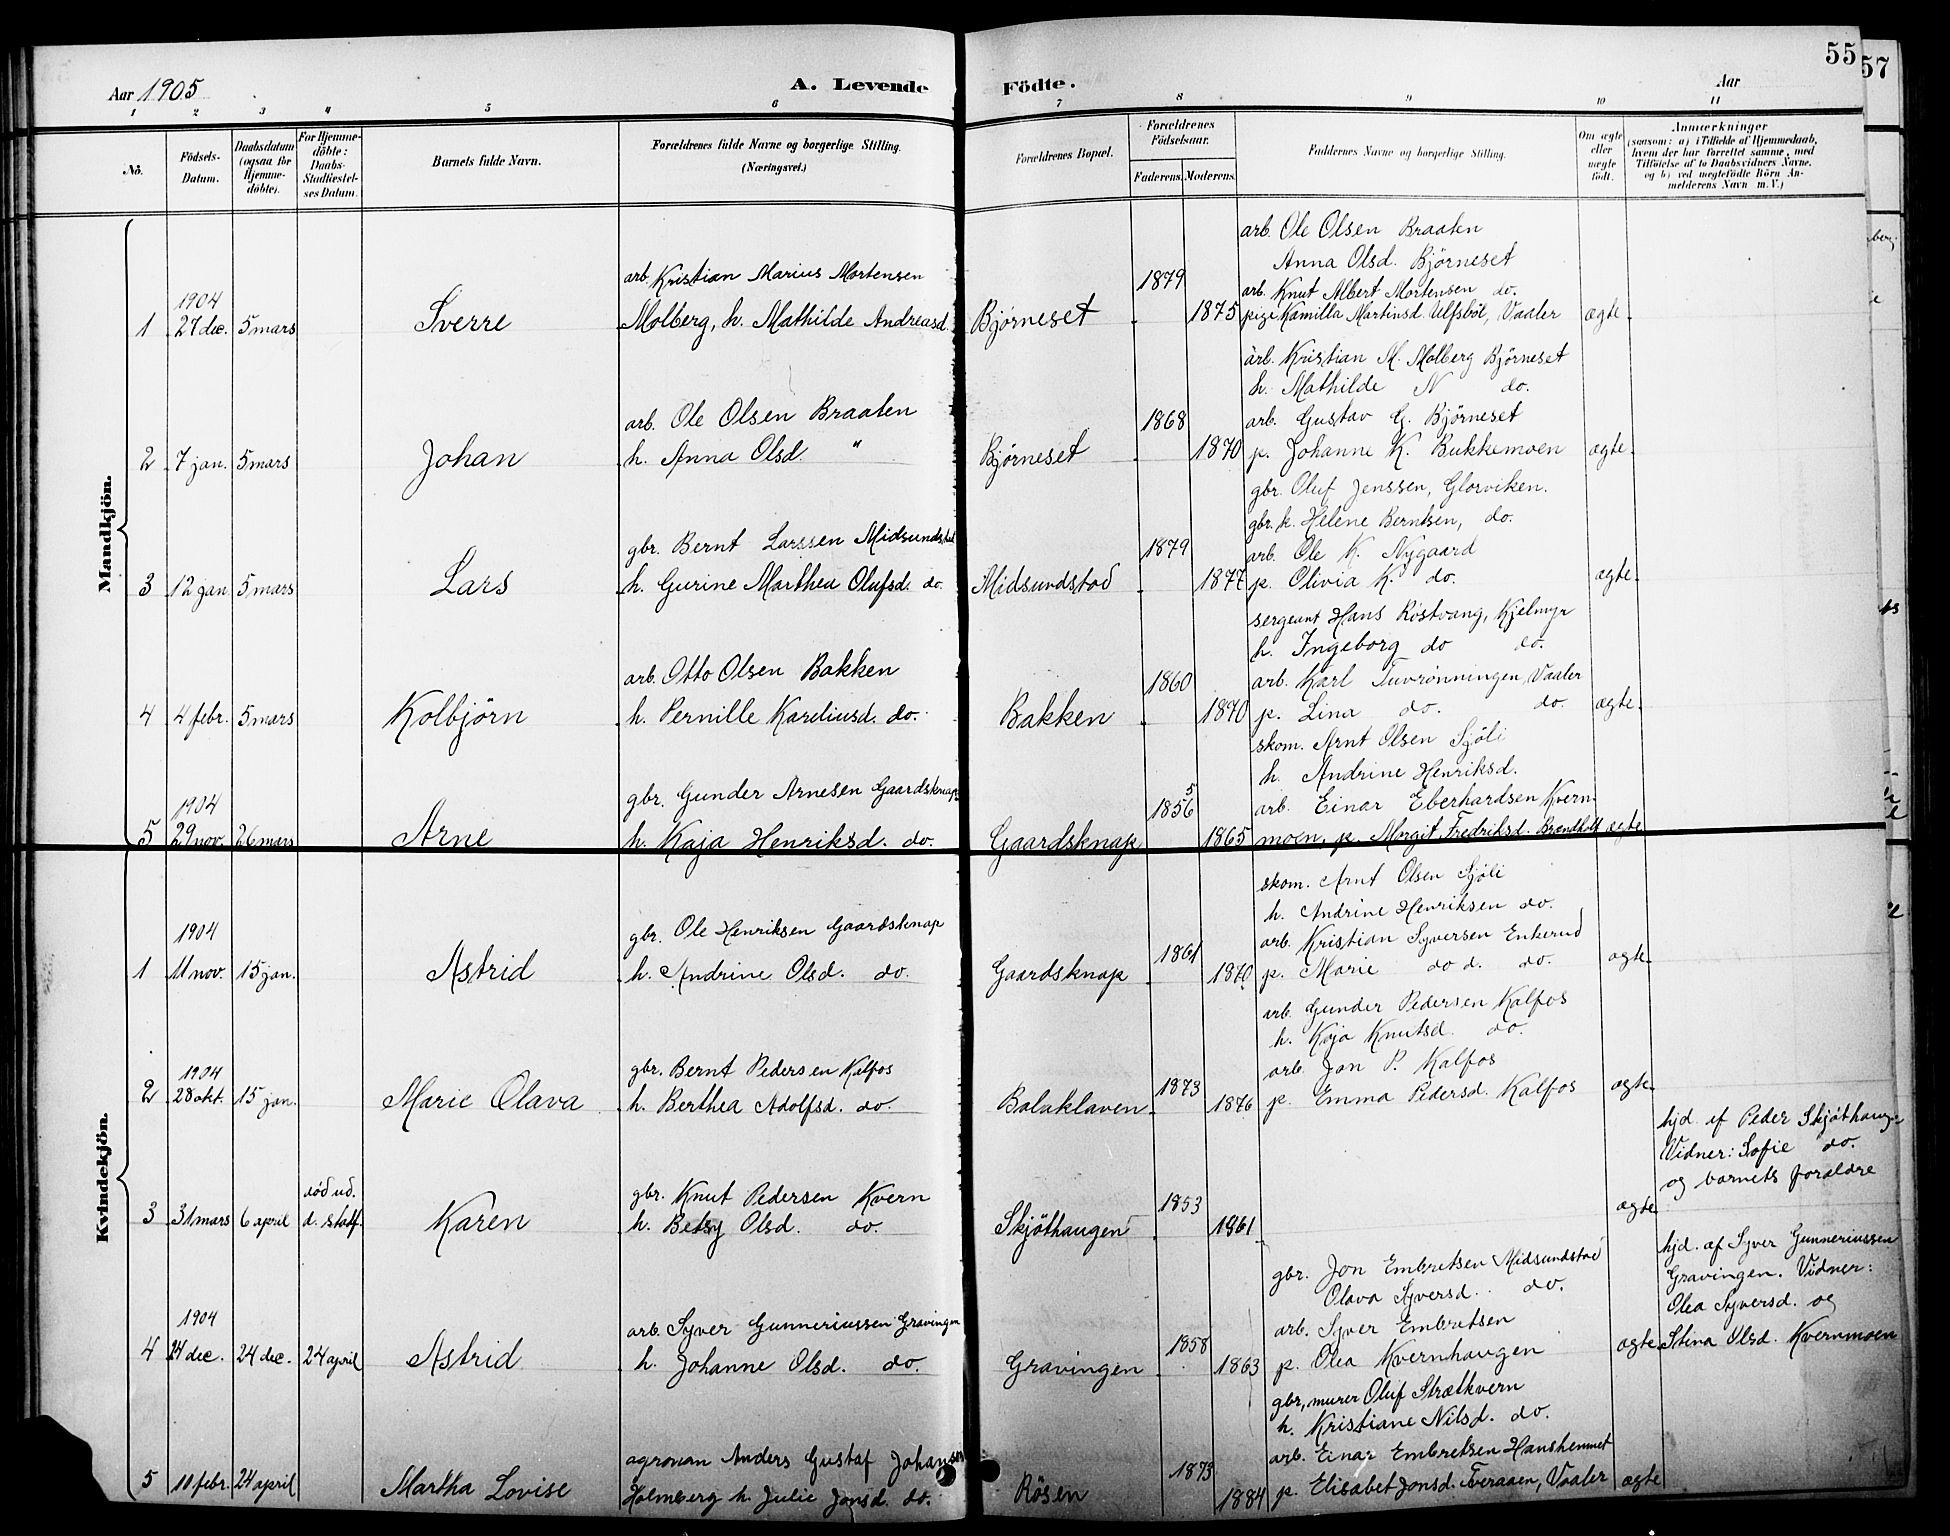 55
57
Aar 1905
A. Levende Födte.
Aar
1 2 3 4 5 6 7 8 9 10 11
No.
Födsels-Datum.
Daabsdatum (ogsaa for Hjemme-döbte).
For Hjemme-döbte: Daabs-Stadfæstel-ses Datum.
Barnets fulde Navn.
Forældrenes fulde Navne og borgerlige Stilling. (Næringsvei.)
Forældrenes Bopæl.
Forældrenes Födselsaar.
Faderens. Moderens.
Faddernes Navne og borgerlige Stilling.
Om ægte eller uægte födt.
Anmærkninger
(saasom: a) i Tilfælde af Hjemmedaab, hvem der har forrettet samme, med Tilföielse af to Daabsvidners Navne, og b) ved uegtefödte Börn An-melderens Navn m. V.)
Mandkjön.
arb. Ole Olsen Braaten
Anna Olsd. Björneset
arb. Kristian Marius Mortensen 1879 arb. Knut Albert Mortensen do.
1904
1 27 dec. 5 mars Sverre Molberg, h. Mathilde Andreasd. Björneset 1875 pige Kamilla Martinsd. Ulfsböl, Vaaler ægte.
arb. Kristian M. Molberg Björneset
h. Mathilde N do.
arb. Ole Olsen Braaten 1868 arb. Gustav G. Björneset
2 7 jan. 5 mars Johan h. Anna Olsd. " Björneset 1870 p. Johanne K. Bukkemoen ægte.
gbr. Oluf Jenssen, Glorviken.
gbr. k. Helene Berntsen, do.
gbr. Bernt Larssen Midsundstad 1879 arb. Ole K. Nygaard
3 12 jan. 5 mars Lars h. Gurine Marthea Olufsd. do. Midsundstad 1877 p. Olivia K. do. ægte.
sergeant Hans Röstvang, Kjelmyr
h. Ingeborg do do.
arb. Otto Olsen Bakken 1860 arb. Karl Tuvrönningen, Vaaler
4 4 febr. 5 mars Kolbjörn h. Pernille Kareliusd. do. Bakken 1870 p. Lina do. do. ægte.
skom. Arnt Olsen Sjöli
h. Andrine Henriksd.
1904 gbr. Gunder Arnesen Gaardsknap 1856 5 arb. Einar Eberhardsen Kvern
5 29 nov. 26 mars Arne h. Kaja Henriksd. do. Gaardsknap 1865 moen, p. Margit Fredriksd. ægte
Kvindekjön.
skom. Arnt Olsen Sjöli
h. Andrine Henriksen do.
1904 gbr. Ole Henriksen Gaardsknap 1861 arb. Kristian Syversen Enkerud
1 11 nov. 15 jan. Astrid h. Andrine Olsd. do. Gaardsknap 1870 p. Marie do d. do. ægte
arb. Gunder Pedersen Kalfos
h. Kaja Knutsd. do.
1904 gbr. Bernt Pedersen Kalfos 1873 arb. Jon P. Kalfos
2 28 okt. 15 jan. Marie Olava h. Berthea Adolfsd. do. Balaklaven 1876 p. Emma Pedersd. Kalfos ægte
hjd. af Peder Skjöthaug
Vidner: Sofie do.
og barnets forældre
död ud. gbr. Knut Pedersen Kvern 1853
3 31 mars 6 april d. stadf. Karen h. Betsy Olsd. do. Skjöthaugen 1861 ægte
gbr. Jon Embretsen Midsundstad hjd. af Syver Gunneriussen
Olava Syversd. do. Gravingen. Vidner:
1904 arb. Syver Gunneriussen Gravingen 1858 arb. Syver Embretsen Olea Syversd. og
4 24 dec. 24 dec. 24 april Astrid h. Johanne Olsd. do. Gravingen 1863 p. Olea Kvernhaugen ægte Stina Olsd. Kvernmoen
gbr, murer Oluf Strætkvern
h. Kristiane Nilsd. do.
agronom Anders Gustaf Johansen 1873 arb. Einar Embretsen Hanshemmet
5 10 febr. 24 april Martha Lovise Holmberg h. Julie Jonsd. do. Rösen 1884 p. Elisabet Jonsd. Tveraaen, Vaaler ægte